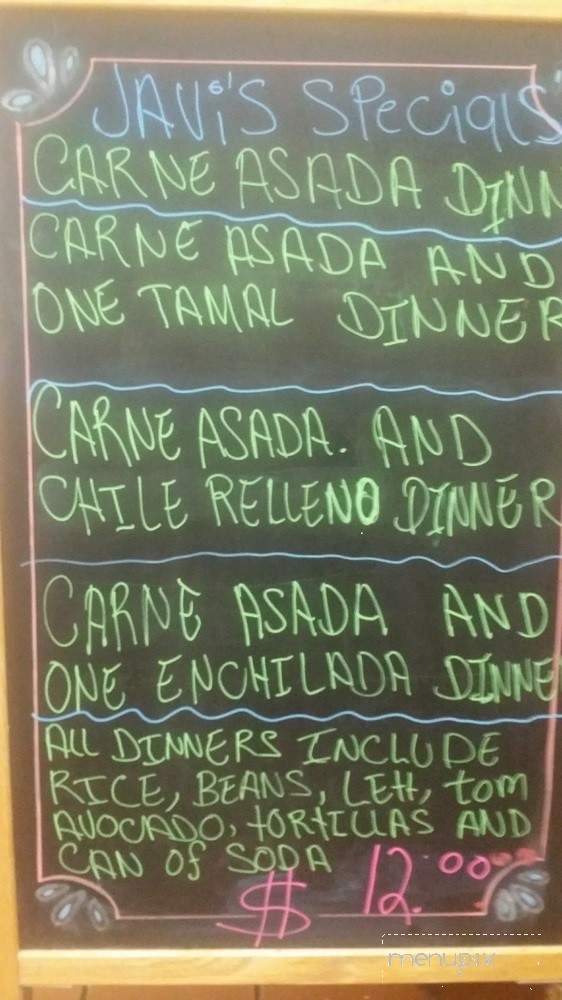 JAVi'S SPeciqlS'
CARNE ASADA DINN
CARNE ASADA AND
ONE TAMAL DINNER
CARNE ASADA. AND
CHILE RELLENO DINNER
CARNE ASADA AND
ONE ENCHILADA DINNE
ALL DINNERS INCLUDE
RICE, BEANS, LEtt, tom
AVOCADO, tORTILLAS AND
CAN Of SODA
$ 12.00
menupix